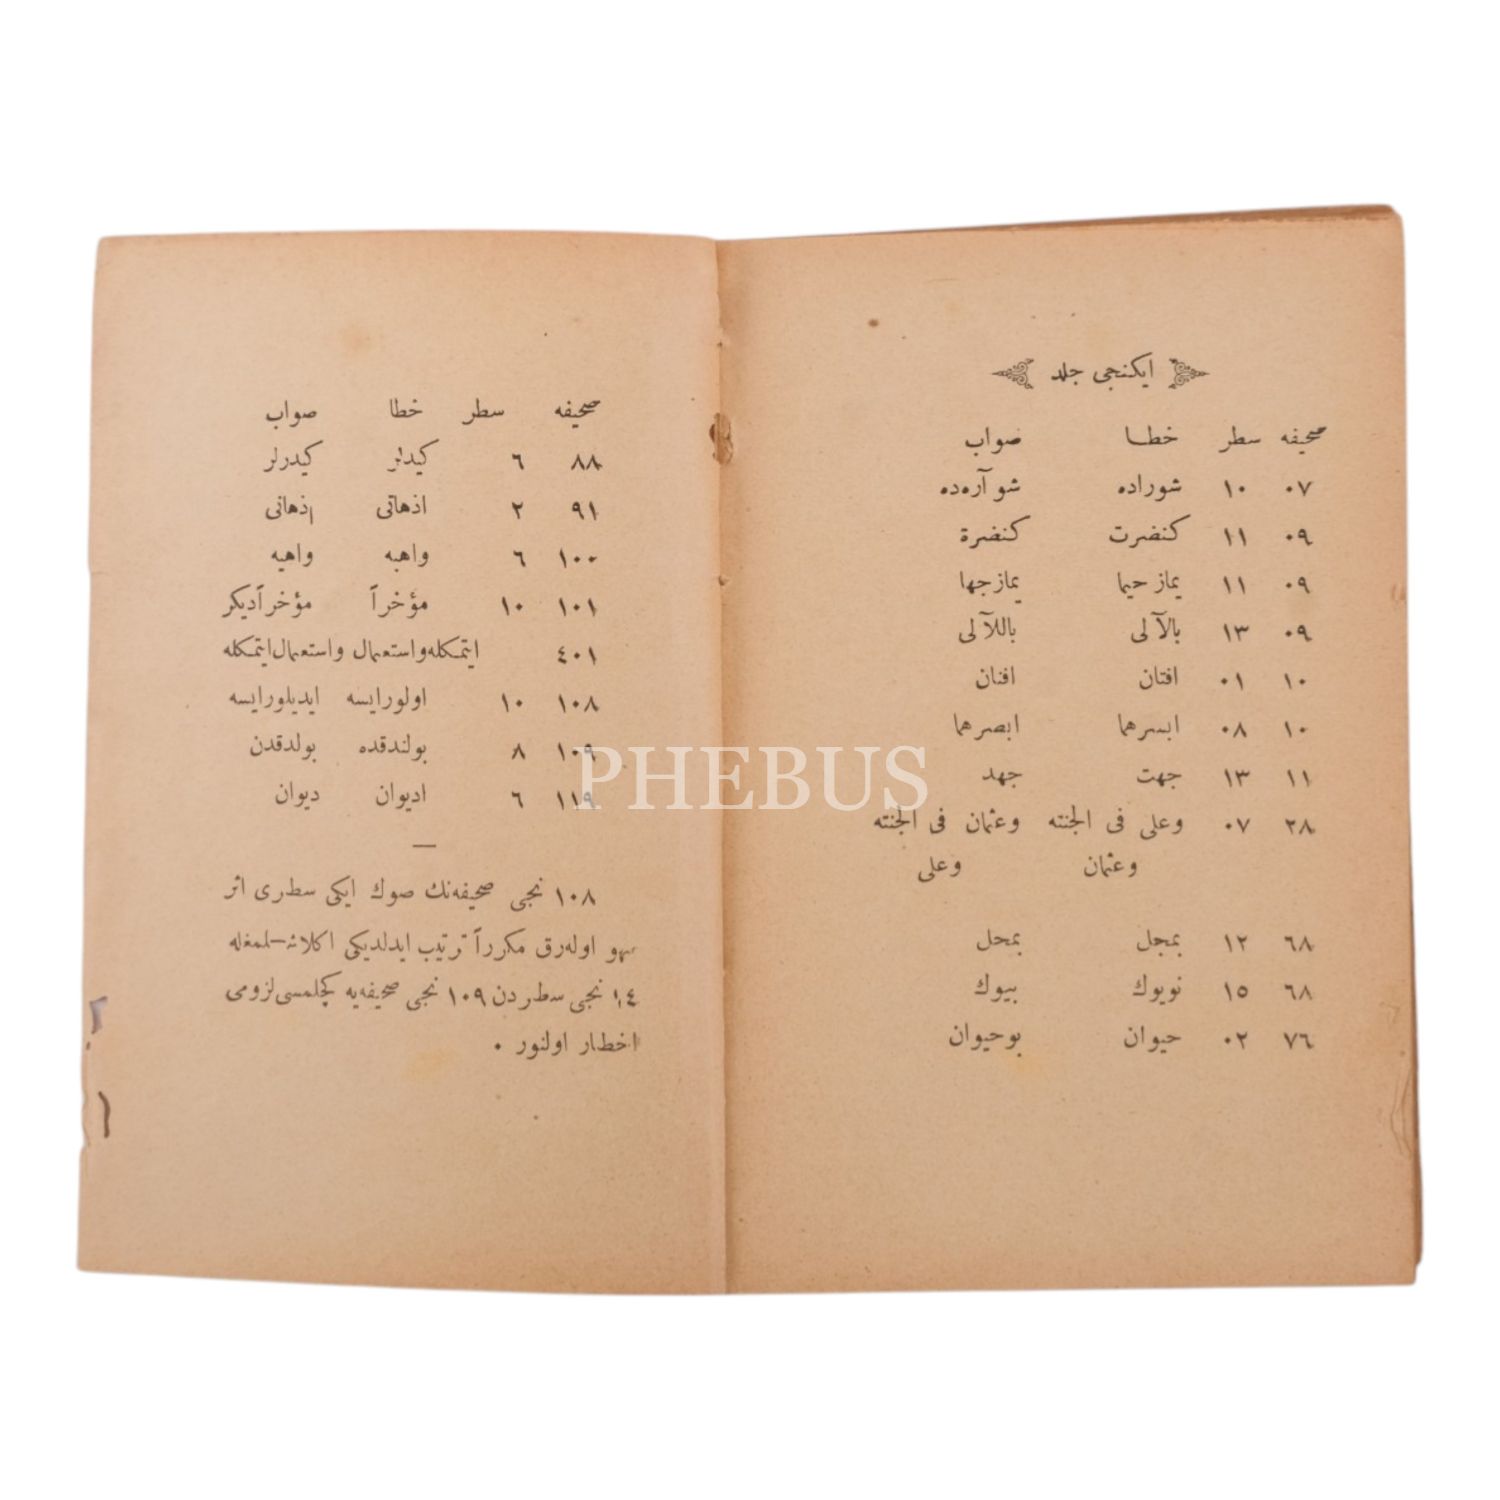 ایکنجی جلد
صحیفه سطر خطا صواب
٠٧ ١٠ شوراده شو آره‌ده
٠٩ ١١ كنضرت كنضرة
٠٩ ١١ یمازحیما یمازجها
٠٩ ١٣ بالآلی باللآلی
١٠ ٠١ افتان افنان
١٠ ٠٨ ابسرهما ابصرهما
١١ ١٣ جهت جهد
٢٨ ٠٧ وعلی فی الجنته وعثمان فی الجنته
وعثمان وعلی
٦٨ ١٢ بمجل بمحل
٦٨ ١٥ نویوك بیوك
٧٦ ٠٢ حیوان بوحیوان
صحیفه سطر خطا صواب
٨٨ ٦ كیدلر كیدرلر
٩١ ٢ اذهاتی اذهانی
١٠٠ ٦ واهبه واهیه
١٠١ ١٠ مؤخراً مؤخراًدیكر
٤٠١ ایتمكله‌واستعمال واستعمال‌ایتمكله
١٠٨ ١٠ اولورایسه ایدیلورایسه
١٠٩ ٨ بولندقده بولدقدن
١١٩ ٦ ادیوان دیوان
١٠٨ نجی صحیفه‌نك صوك ایكی سطری اثر
سهو اوله‌رق مكرراً ترتیب ایدلدیكی اكلاشـلمغله
١٤ نجی سطردن ١٠٩ نجی صحیفه‌یه كچلمسی لزومی
اخطار اولنور ٠
PHEBUS